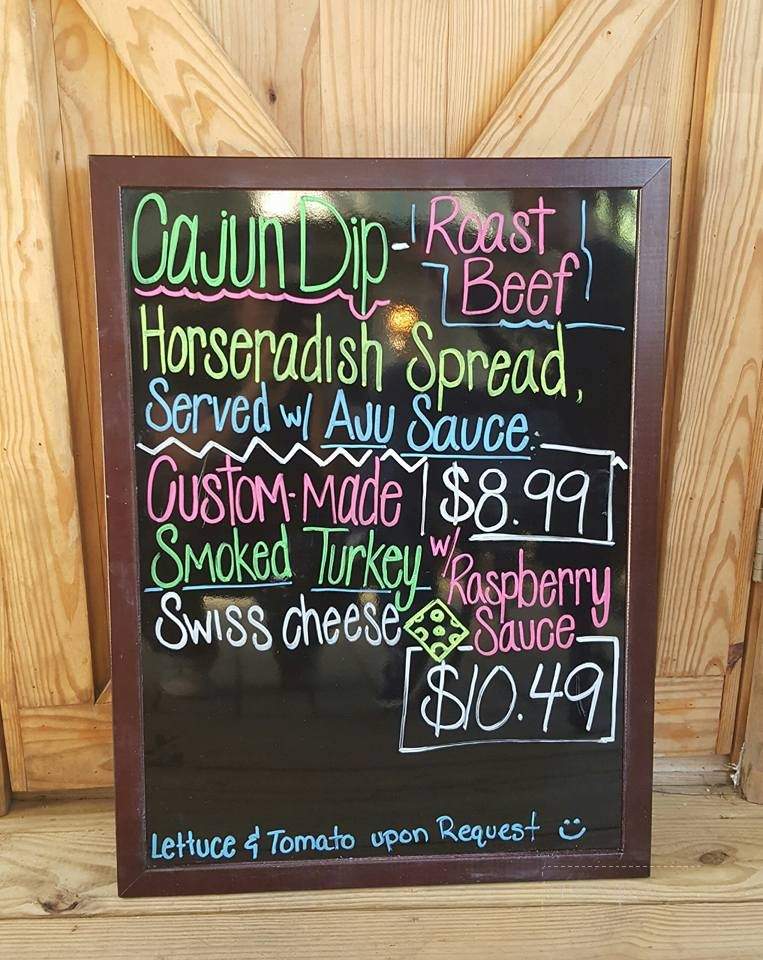 Cajun Dip - Roast Beef
Horseradish Spread,
Served w/ AJU Sauce.
$8.99
Custom-Made
Smoked Turkey w/ Raspberry Sauce
Swiss cheese
$10.49
Lettuce & Tomato upon Request